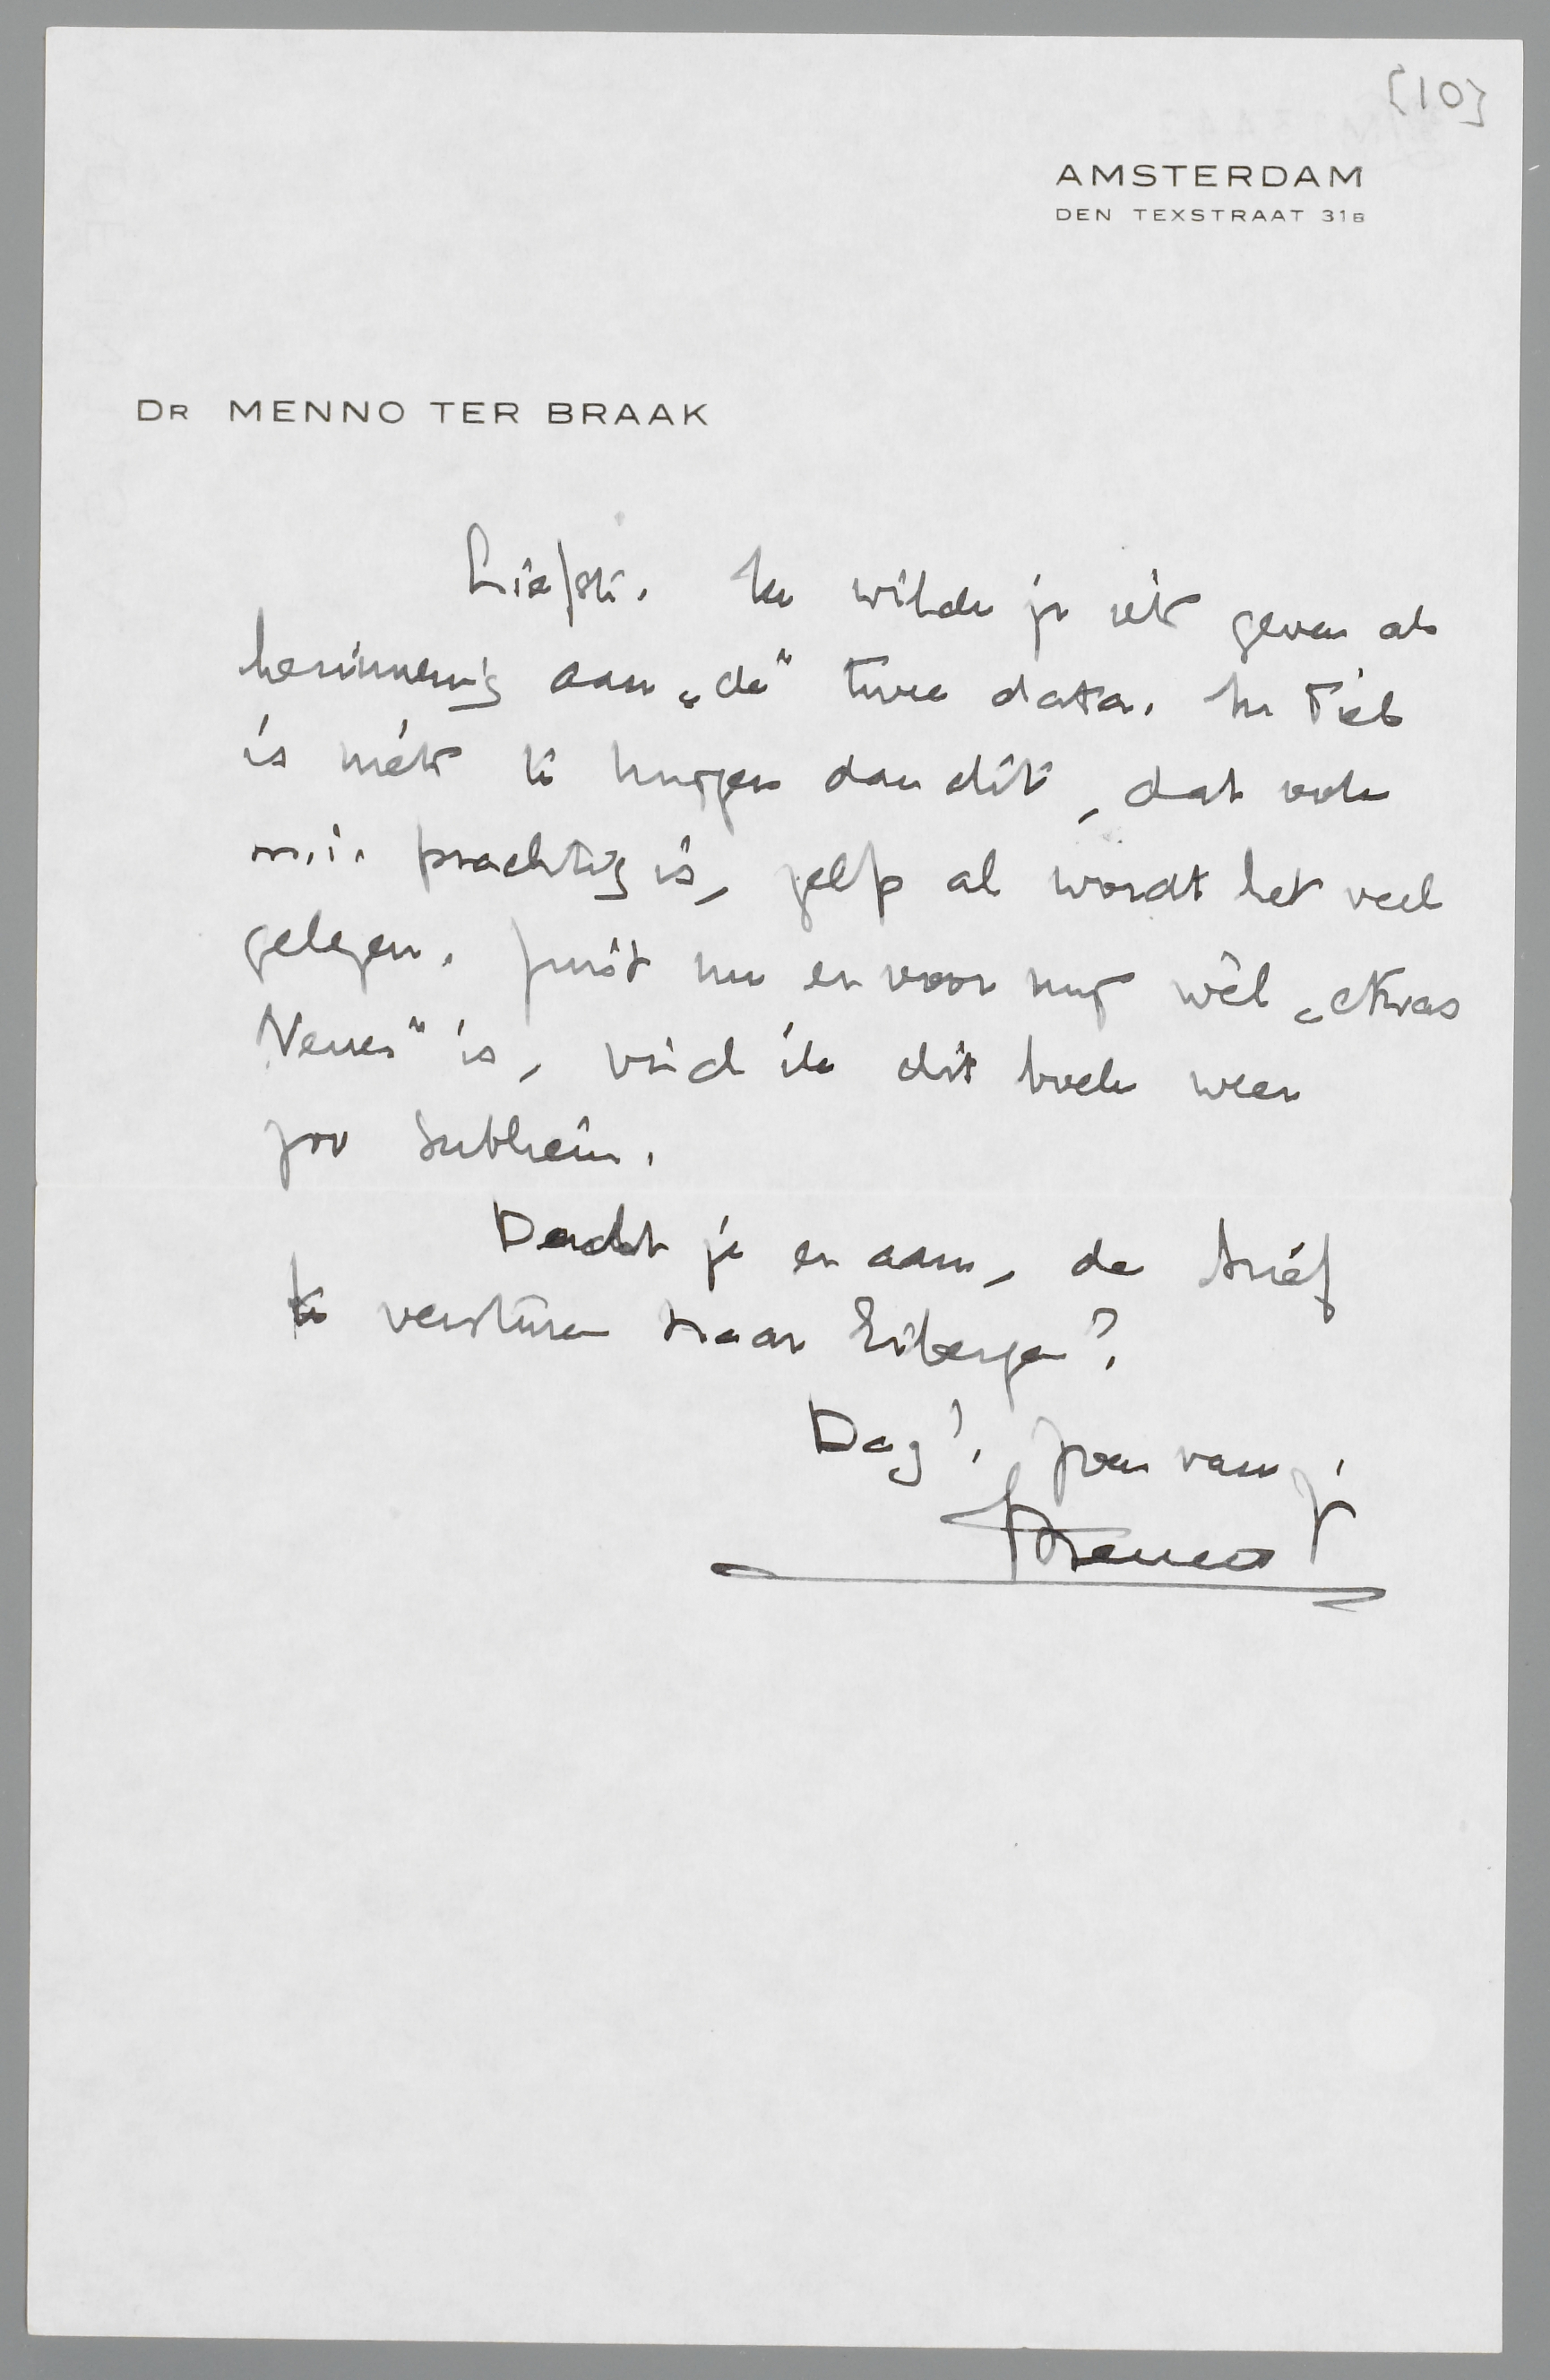 [10]
AMSTERDAM
DEN TEXSTRAAT 31B
DR MENNO TER BRAAK
Liefste. Ik wilde je iets geven als
herinnering aan „de" twee data. In Tiel
is niets te krijgen dan dit, dat ook
m.i. prachtig is, zelfs al wordt het veel
gelezen. Juist nu er voor mij wèl „etwas
Neues" is, vind ik dit boek weer
zoo subliem.
Dacht je er aan, de brief
te versturen naar Eibergen?
Dag! zoen van je
Menno